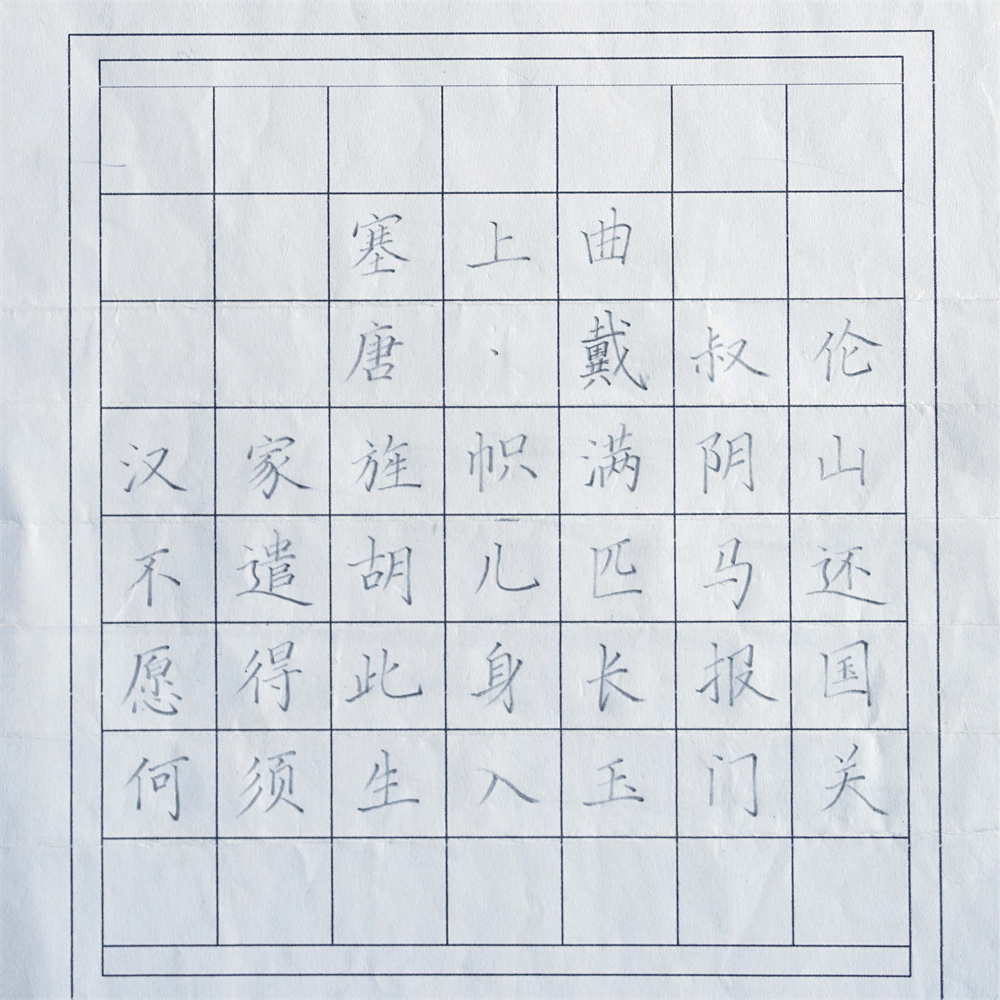 塞上曲
唐·戴叔伦
汉家旌帜满阴山
不遣胡儿匹马还
愿得此身长报国
何须生入玉门关